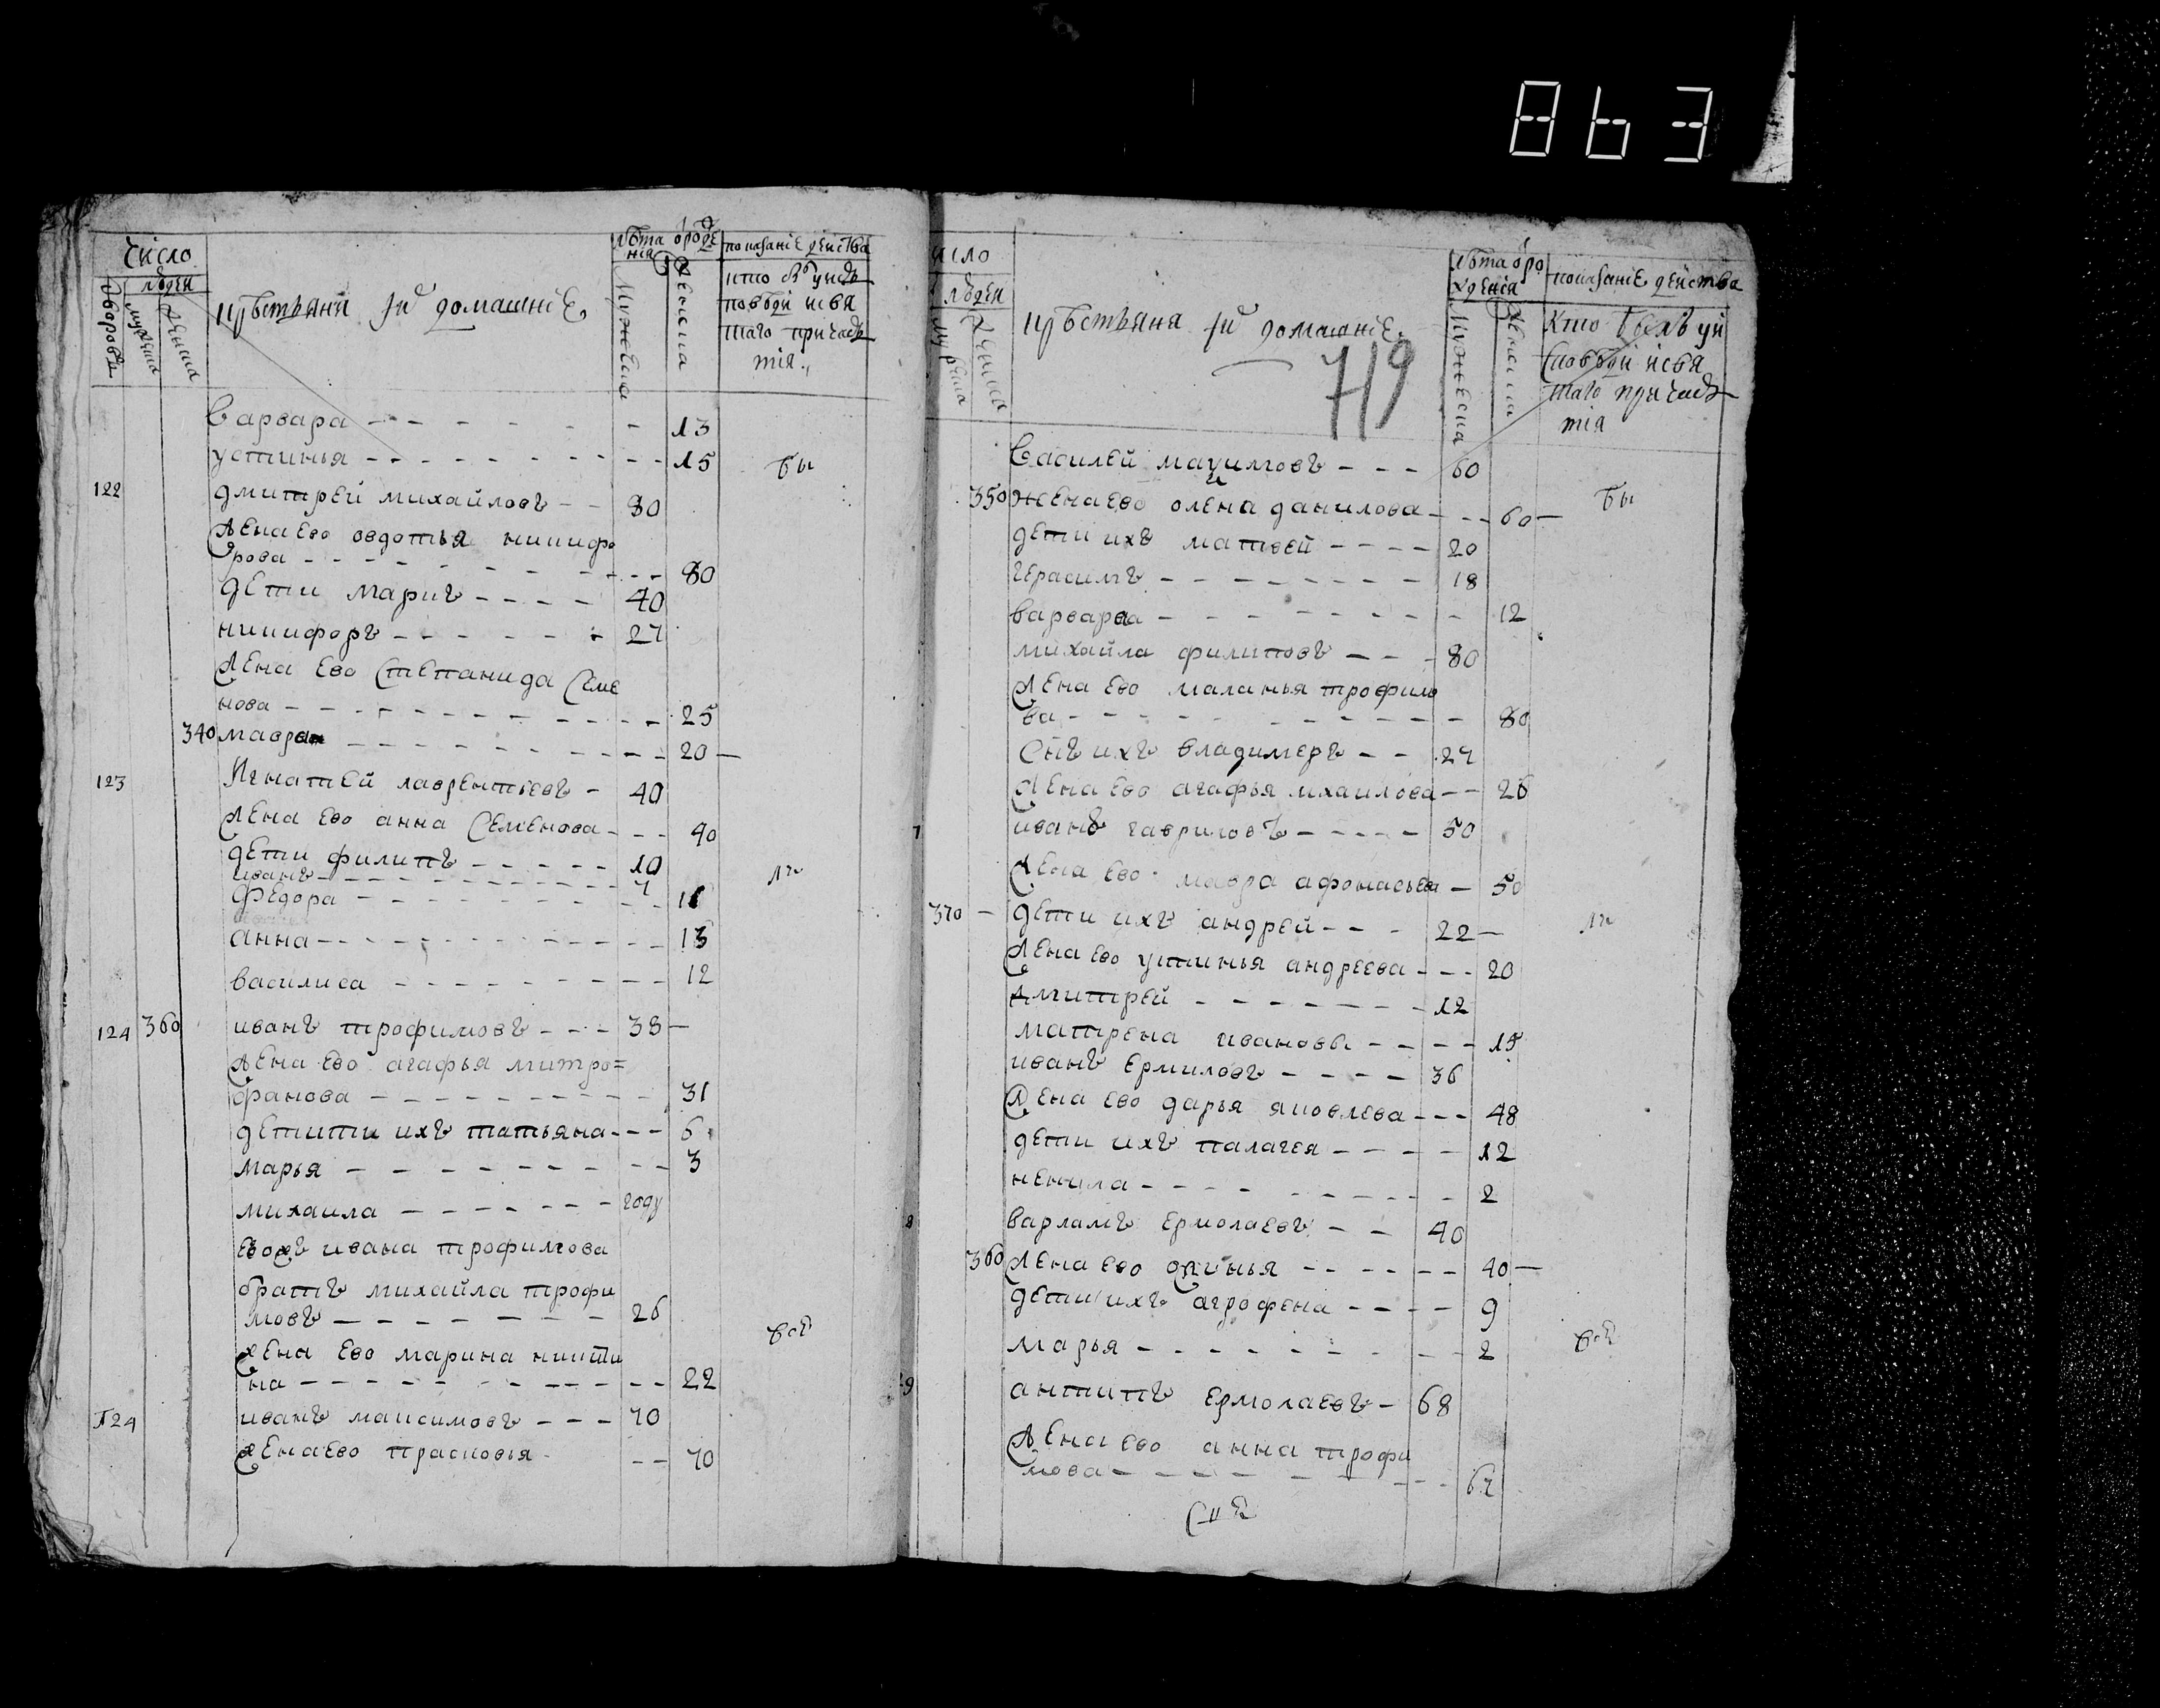 863
число
людей
дворовъ
мужеска
женска
крестьяня и домашние
лѣта о рожде
ния
мужеска
женска
показание действа
кто былъ у испо
поведи и свя
таго причас
тия
варвара - - - - - - 13
устинья - - - - - - 15 бы
122 дмитрей михайловъ - - 80
жена ево овдотья никифо
рова - - - - - - 80
дети маркъ - - - - 40
никифоръ - - - - - 27
жена ево степанида семе
нова - - - - - - 25
340 мавра - - - - - - 20 —
123 игнатей лаврентьевъ - 40
жена ево анна семенова - - - 40
дети филипъ - - - - - 10
иванъ - - - - - - 7
федора - - - - - - 11
анна - - - - - - 13
василиса - - - - - - 12
124 360 иванъ трофимовъ - - - 38 —
жена ево агафья митро=
фанова - - - - - - 31
детити ихъ татьяна - - - 6
марья - - - - - - 3
михаила - - - - - - году
ивана трофимова
братъ михайла трофи
мовъ - - - - - - 26
всѣ
жена ево марина никити
на - - - - - - 22
124 иванъ максимовъ - - - 70
жена ево прасковья - - - 70
число
людей
мужеска
женска
крестьяня и домашние
719
лѣта о ро
ждения
мужеска
женска
показание действа
кто былъ у ис
поведи и свя
таго причас
тия
василей макимовъ - - - 60
350 жена ево олена данилова - - - 60 — бы
дети ихъ матвей - - - - 20
герасимъ - - - - - - 18
варвара - - - - - - 12
михайла филиповъ - - - 80
жена ево маланья трофимо
ва - - - - - - 80
снъ ихъ владимеръ - - 27
жена ево агафья михаилова - - 26
7 иванъ гавриловъ - - - - - 50
жена ево мавра афонасьева - 50
370 — дети ихъ андрей - - - 22 —
жена ево устинья андреева - - - 20
дмитрей - - - - - - 12
матрена иванова - - - - 15
иванъ ермиловъ - - - - 36
жена ево дарья яковлева - - - 48
дети ихъ палагея - - - - 12
ненила - - - - - - 2
8 варламъ ермолаевъ - - 40
360 жена ево - - - - - - 40 —
дети ихъ агрофена - - - - 9
марья - - - - - - 2 всѣ
9 антипъ ермолаевъ - 68
жена ево анна трофи
мова - - - - - - 67